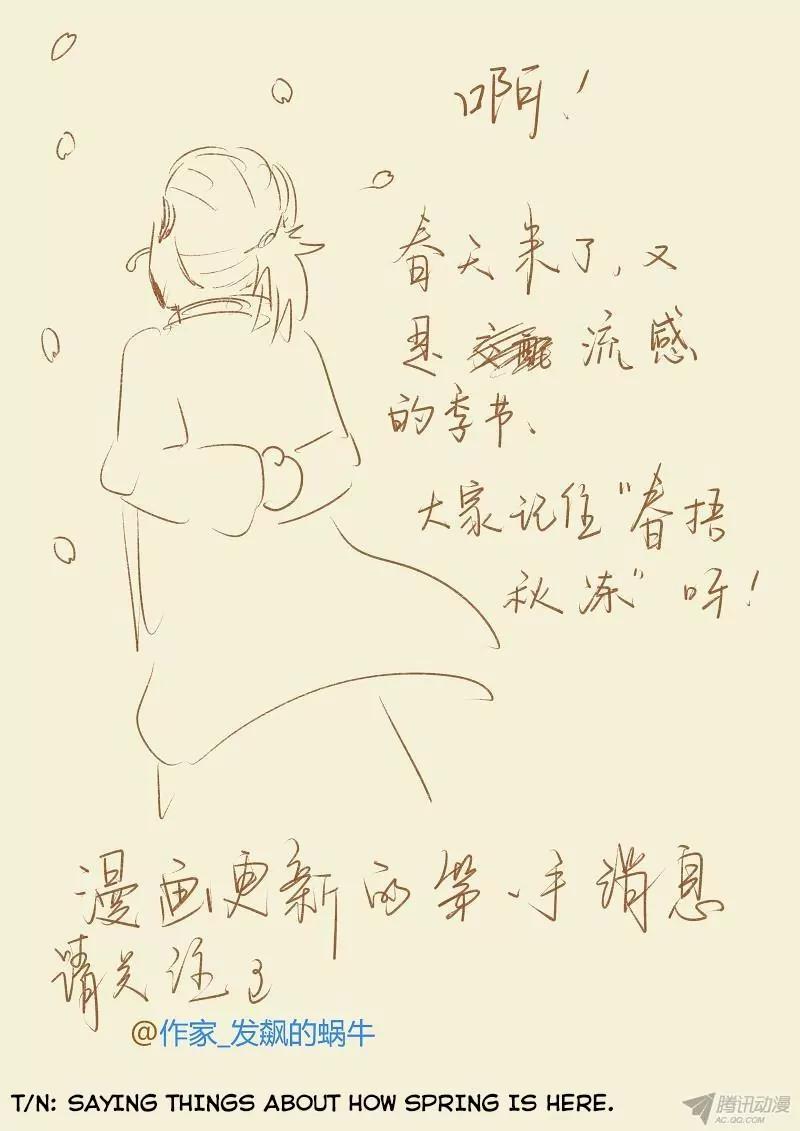 啊！
春天来了，又
是 交配 流感
的季节、
大家记住“春捂
秋冻”呀！
漫画更新的第一手消息
请关注
@作家_发飙的蜗牛
T/N: SAYING THINGS ABOUT HOW SPRING IS HERE.
腾讯动漫
AC.QQ.COM